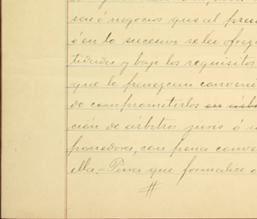 sas ó negocios que al prese
ó en lo sucesivo se les ofrez
tidades y bajo los requisitos
que le parezcan conveni
do comprometerlos en
ción de árbitros juris ó
ponedores, con pena conve
ella.- Para que formalice